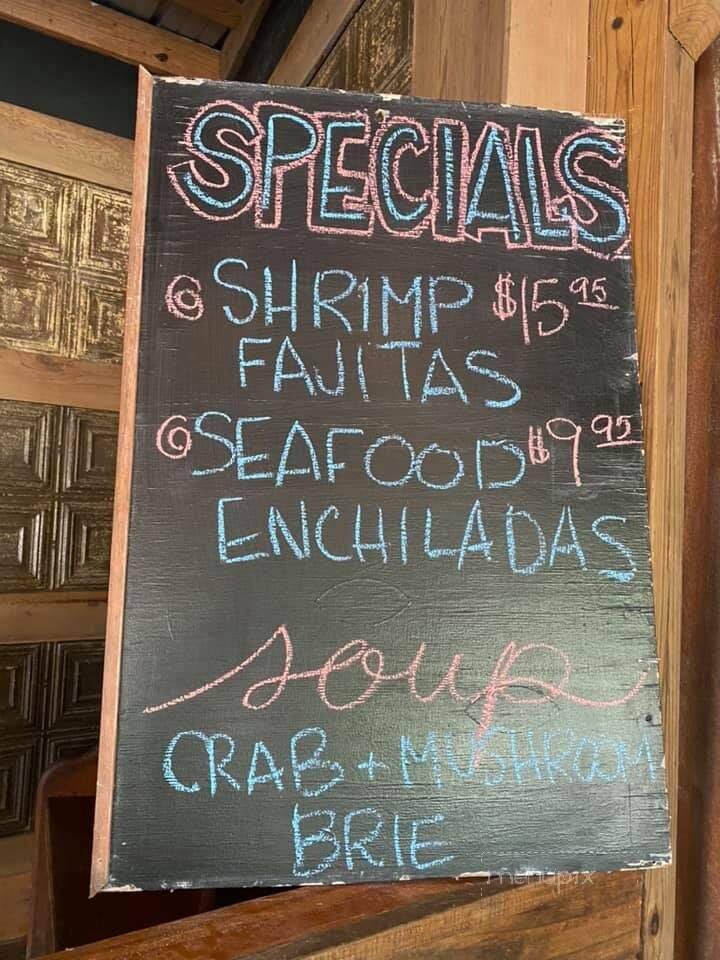 SPECIALS
SHRIMP $15.95
FAJITAS
SEAFOOD $9.95
ENCHILADAS
soup
CRAB + MUSHROOM
BRIE
menupix